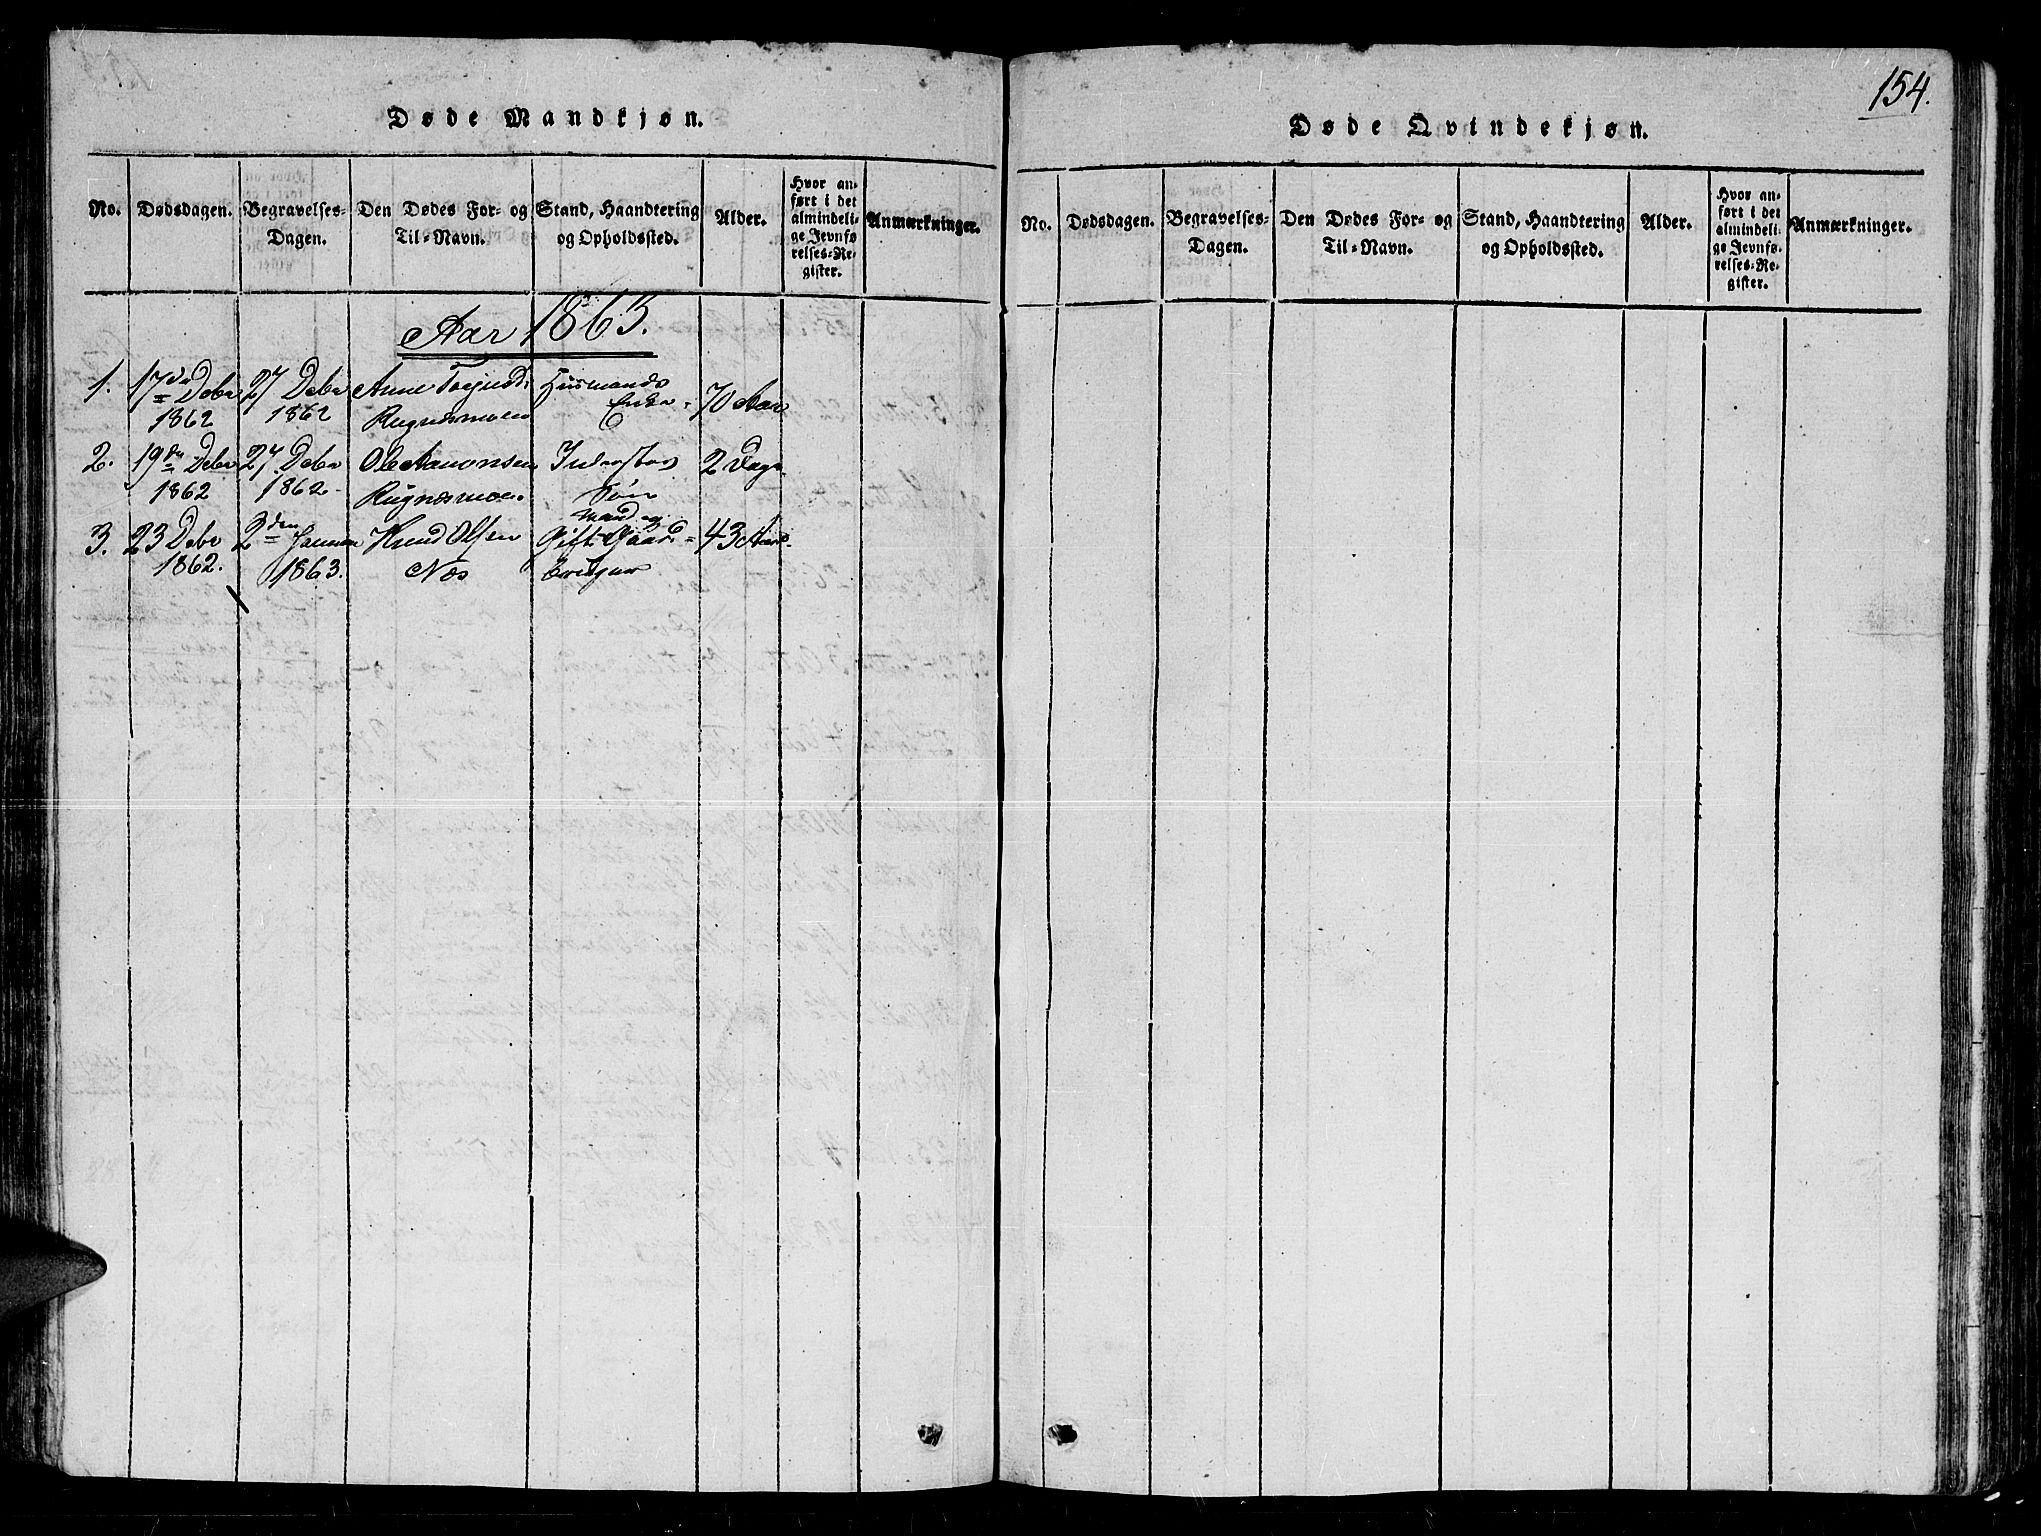 154.
Døde Mandkjøn.
No. Dødsdagen. Begravelses-Dagen. Den Dødes For- og Til-Navn. Stand, Haandtering og Opholdssted. Alder. Hvor anført i det almindelige Jevnførelses-Register. Anmærkninger.
Aar 1863.
1. 17de Debr 27 Debr Anne Husmands 70 Aar
1862 1862 Rugnesmoen Enke
2. 19de Debr 27 Debr Ole Aanonsen Inderster 2 Dage
1862 1862 Rugnesmoen Søn
Mand og
3. 23 Debr 2den Januar Knud Olsen Gift Gaard- 43 Aar
1862. 1863. Næs bruger
Døde Qvindekjøn.
No. Dødsdagen. Begravelses-Dagen. Den Dødes For- og Til-Navn. Stand, Haandtering og Opholdssted. Alder. Hvor anført i det almindelige Jevnførelses-Register. Anmærkninger.